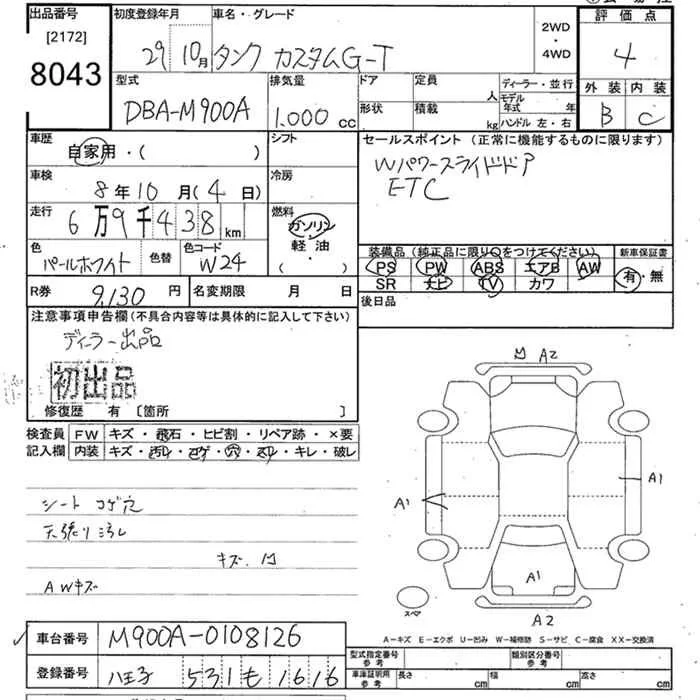 出品番号 初度登録年月 車名・グレード
[2172]
8043
29 10月 タンク カスタムG-T
2WD
4WD
評価点
4
外装 内装
B C
型式 排気量 ドア 定員 人 ディーラー・並行
DBA-M900A 1.000 cc
モデル年式 年
形状 積載 kg ハンドル 左・右
車歴 シフト
自家用・( )
車検 冷房
8年10月(4日)
走行 燃料
6万9千438km
ガソリン
軽油
( )
色 色替 色コード
パールホワイト W24
R券 9,130円 名変期限 月 日
セールスポイント(正常に機能するものに限ります)
Wパワースライドドア
ETC
装備品(純正品に限り○をつけてください) 新車保証書
PS PW ABS エアB AW 有・無
SR ナビ TV カワ
後日品
注意事項申告欄(不具合内容等は具体的に記入して下さい)
ディーラー出品
初出品
修復歴 有 [箇所 ]
検査員 FW キズ・飛石・ヒビ割・リペア跡・×要
記入欄 内装 キズ・汚レ・コゲ・穴・スレ・キレ・破レ
シート コゲ穴
天張り汚し
キズ 凹
AWキズ
凹 A2
A1
A1
A1
A2
スペア
A-キズ E-エクボ U-凹み W-補修跡 S-サビ C-腐食 XX-交換済
車台番号 M900A-0108126
登録番号 八王子 531 も 1616
型式指定番号 参考 類別区分番号 参考
車庫証明用 参考 長さ cm 幅 cm 高さ cm